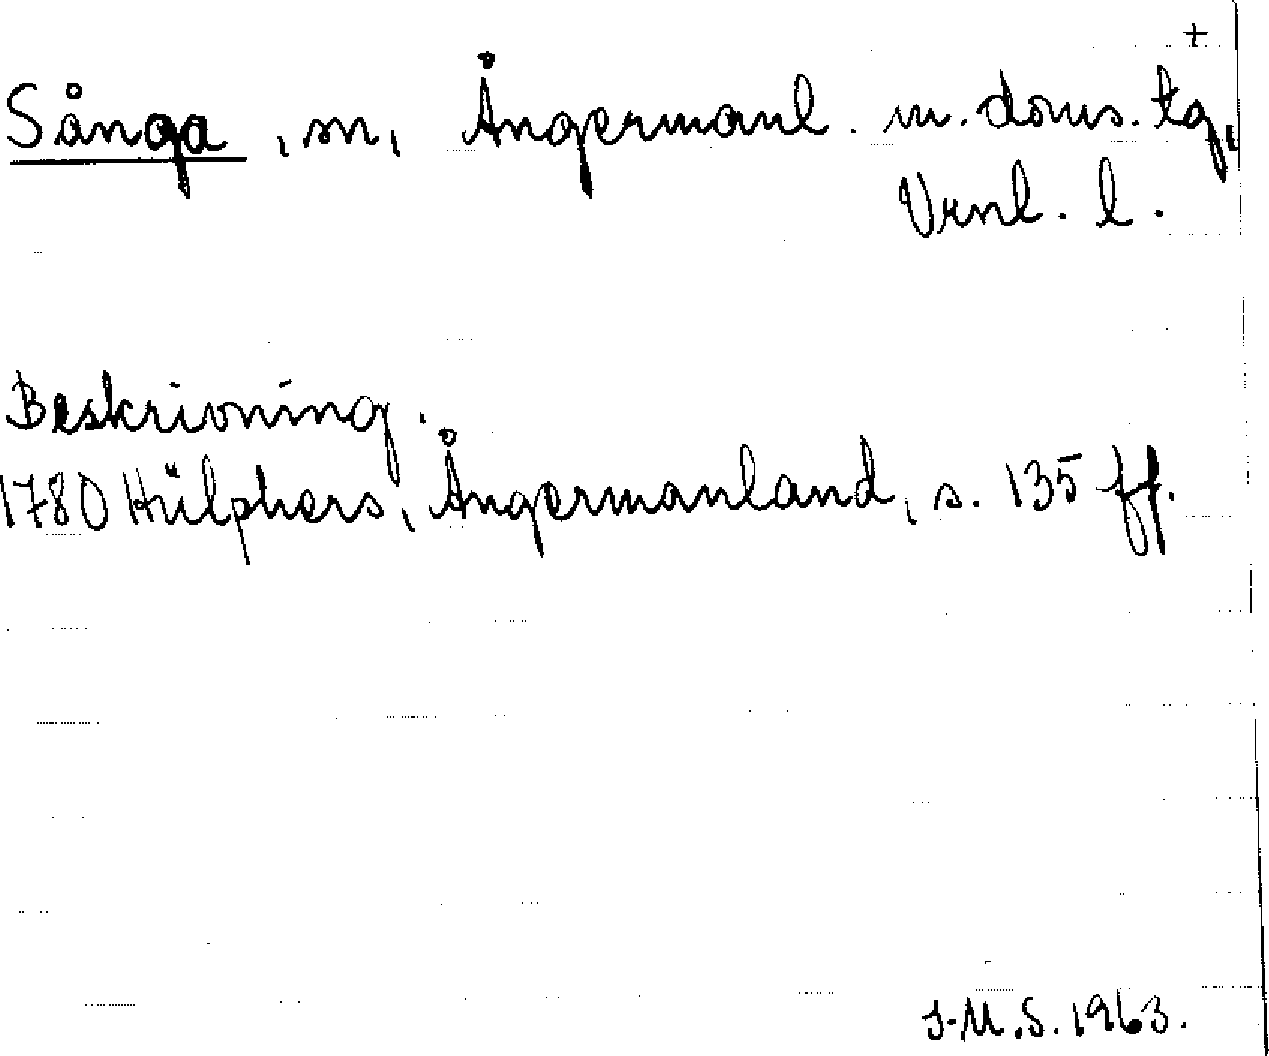 +
Sånga, sn, Ångermanl. m. doms. tg,
Vrnl. l.
Beskrivning.
1780 Hülphers, Ångermanland, s. 135 ff.
J.M.S. 1963.